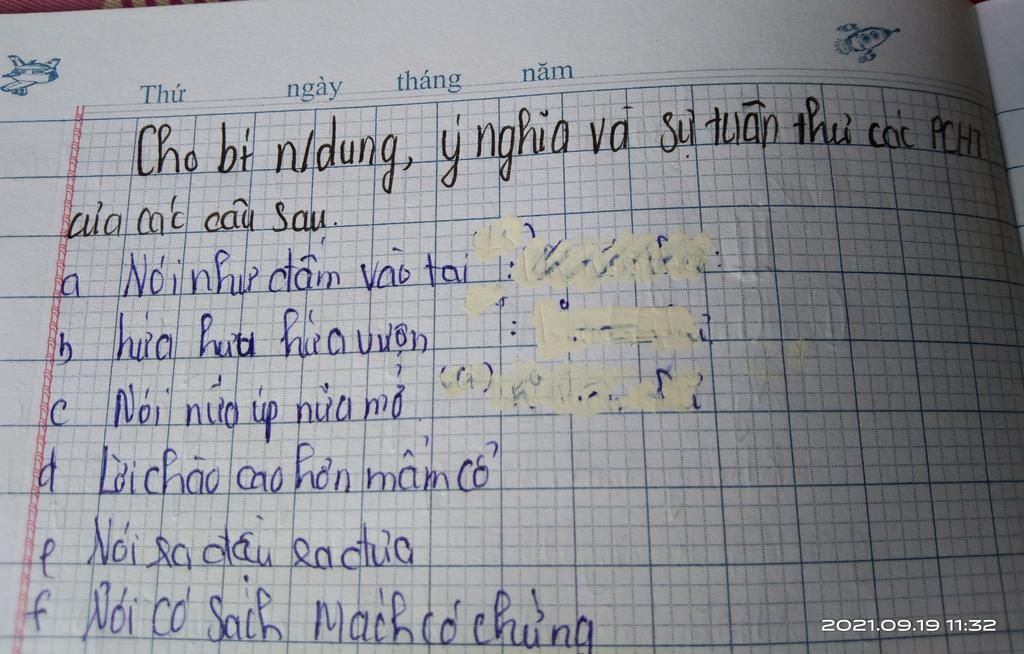 Thứ ngày tháng năm
Cho bt n/dung, ý nghĩa và sự tuân thủ các PCHT
của các câu sau.
a Nói như đấm vào tai :
b hứa hươu hứa vượn :
c Nói nửa úp nửa mở
d Lời chào cao hơn mâm cỗ
e Nói ra đầu ra đũa
f Nói có sách mách có chứng
2021.09.19 11:32